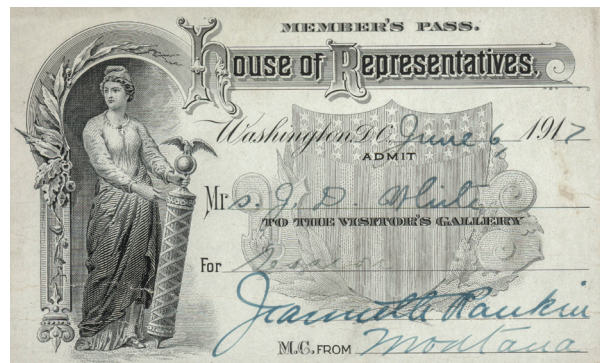 MEMBER'S PASS.
House of Representatives,
Washington, D.C. June 6, 1917
ADMIT
Mrs. J. D. White
TO THE VISITOR'S GALLERY
For
Jeannette Rankin
M.C. FROM Montana